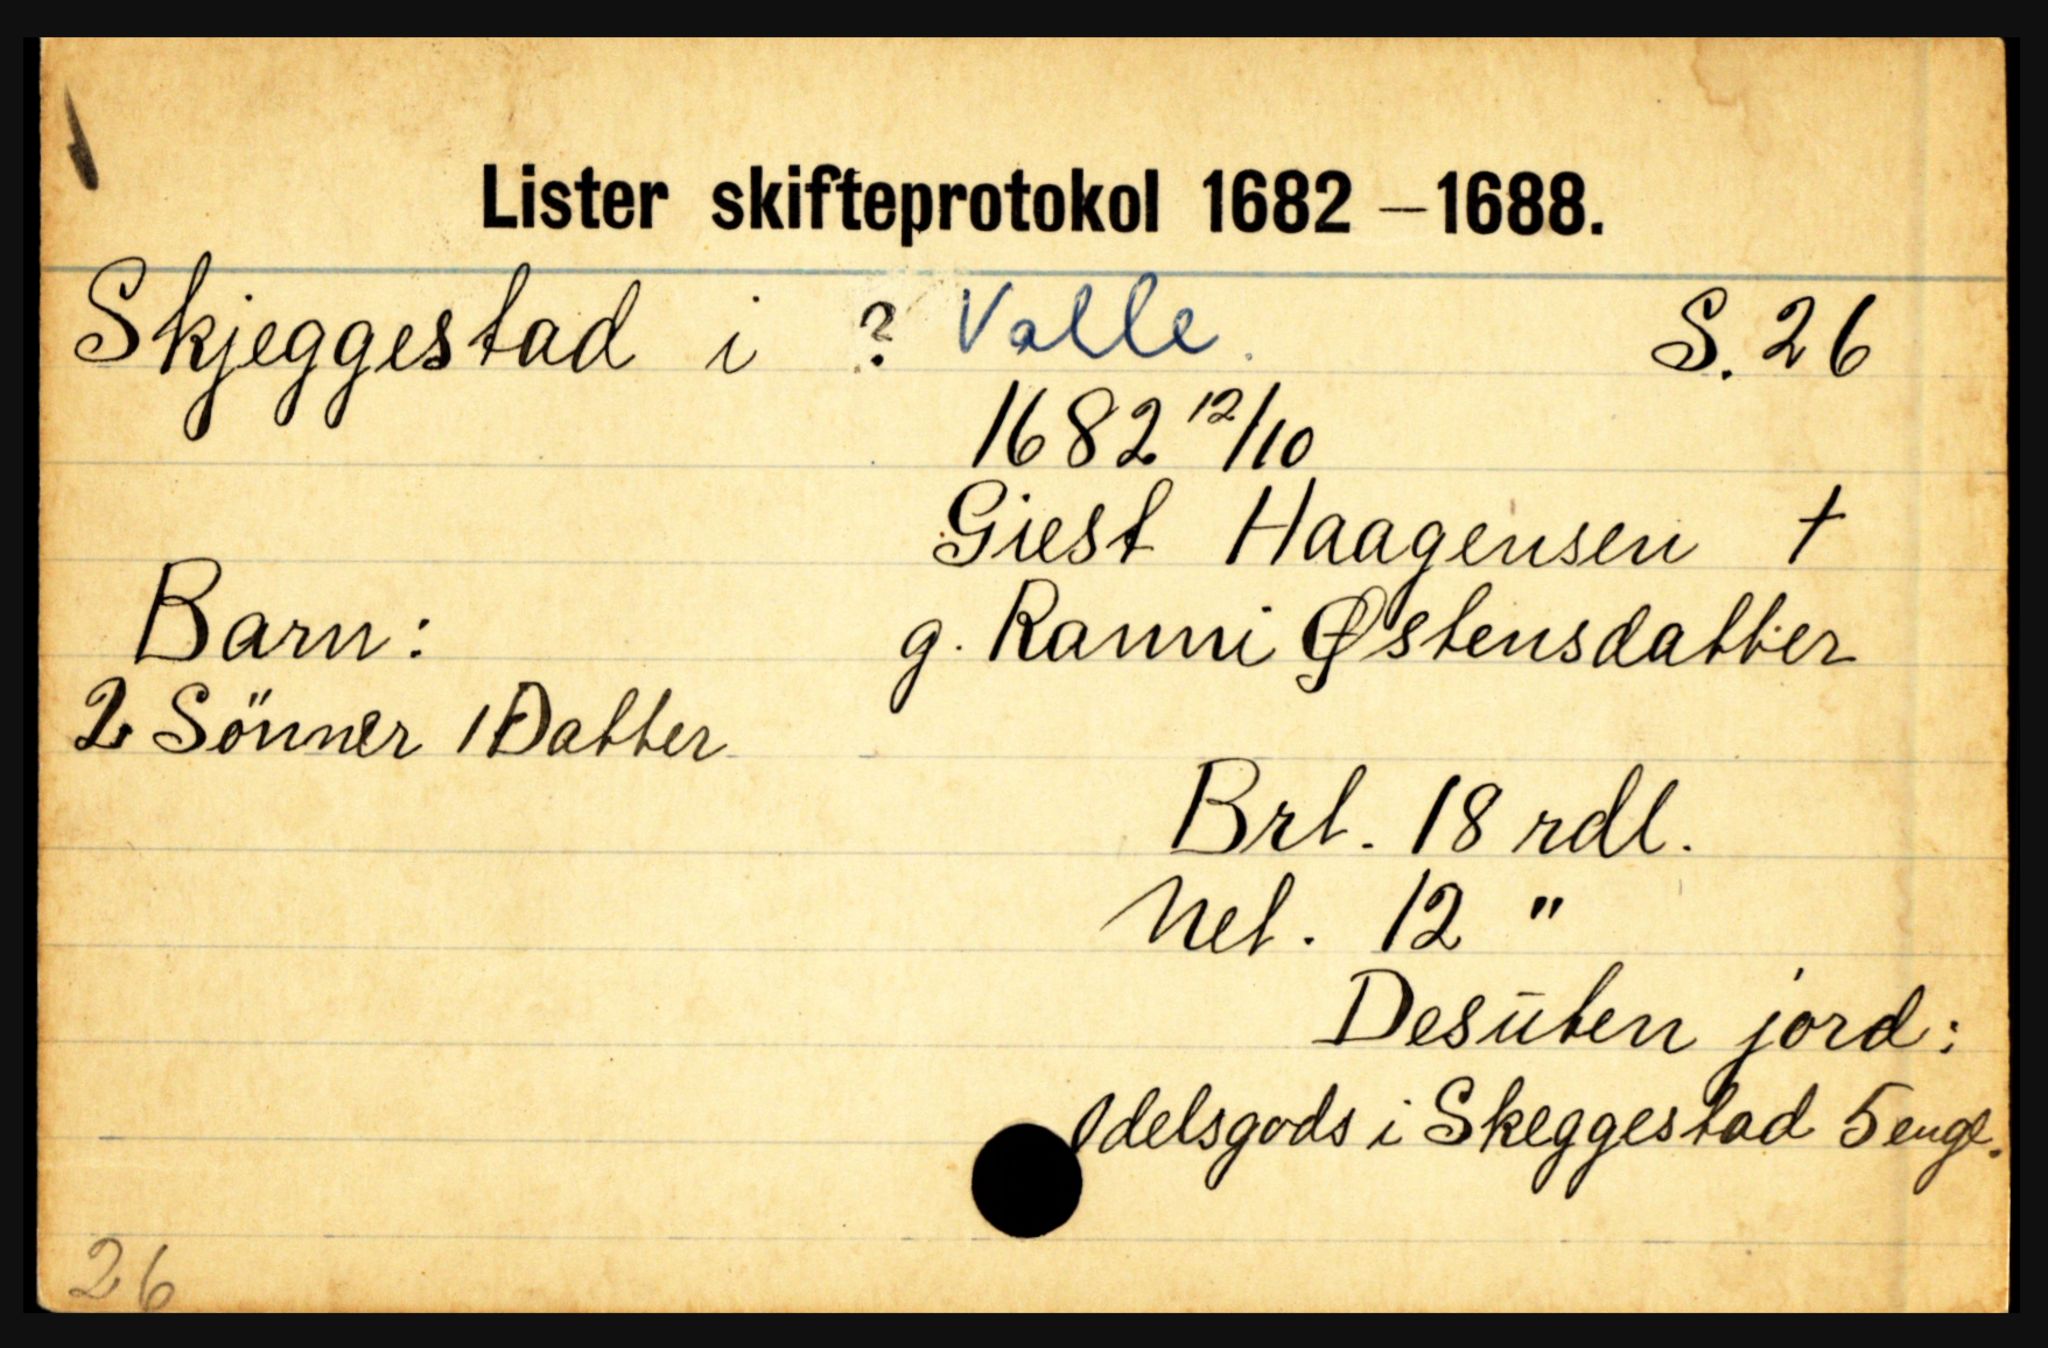 Lister skifteprotokol 1682 – 1688.
Skjeggestad i ? Valle. S. 26
1682 12/10
Giest Haagensen †
Barn: g. Ranni Østensdatter
2 Sönner 1 Datter
Brt. 18 rdl.
Net. 12 "
Desuten jord:
Odelsgods i Skeggestad 5 engl.
26